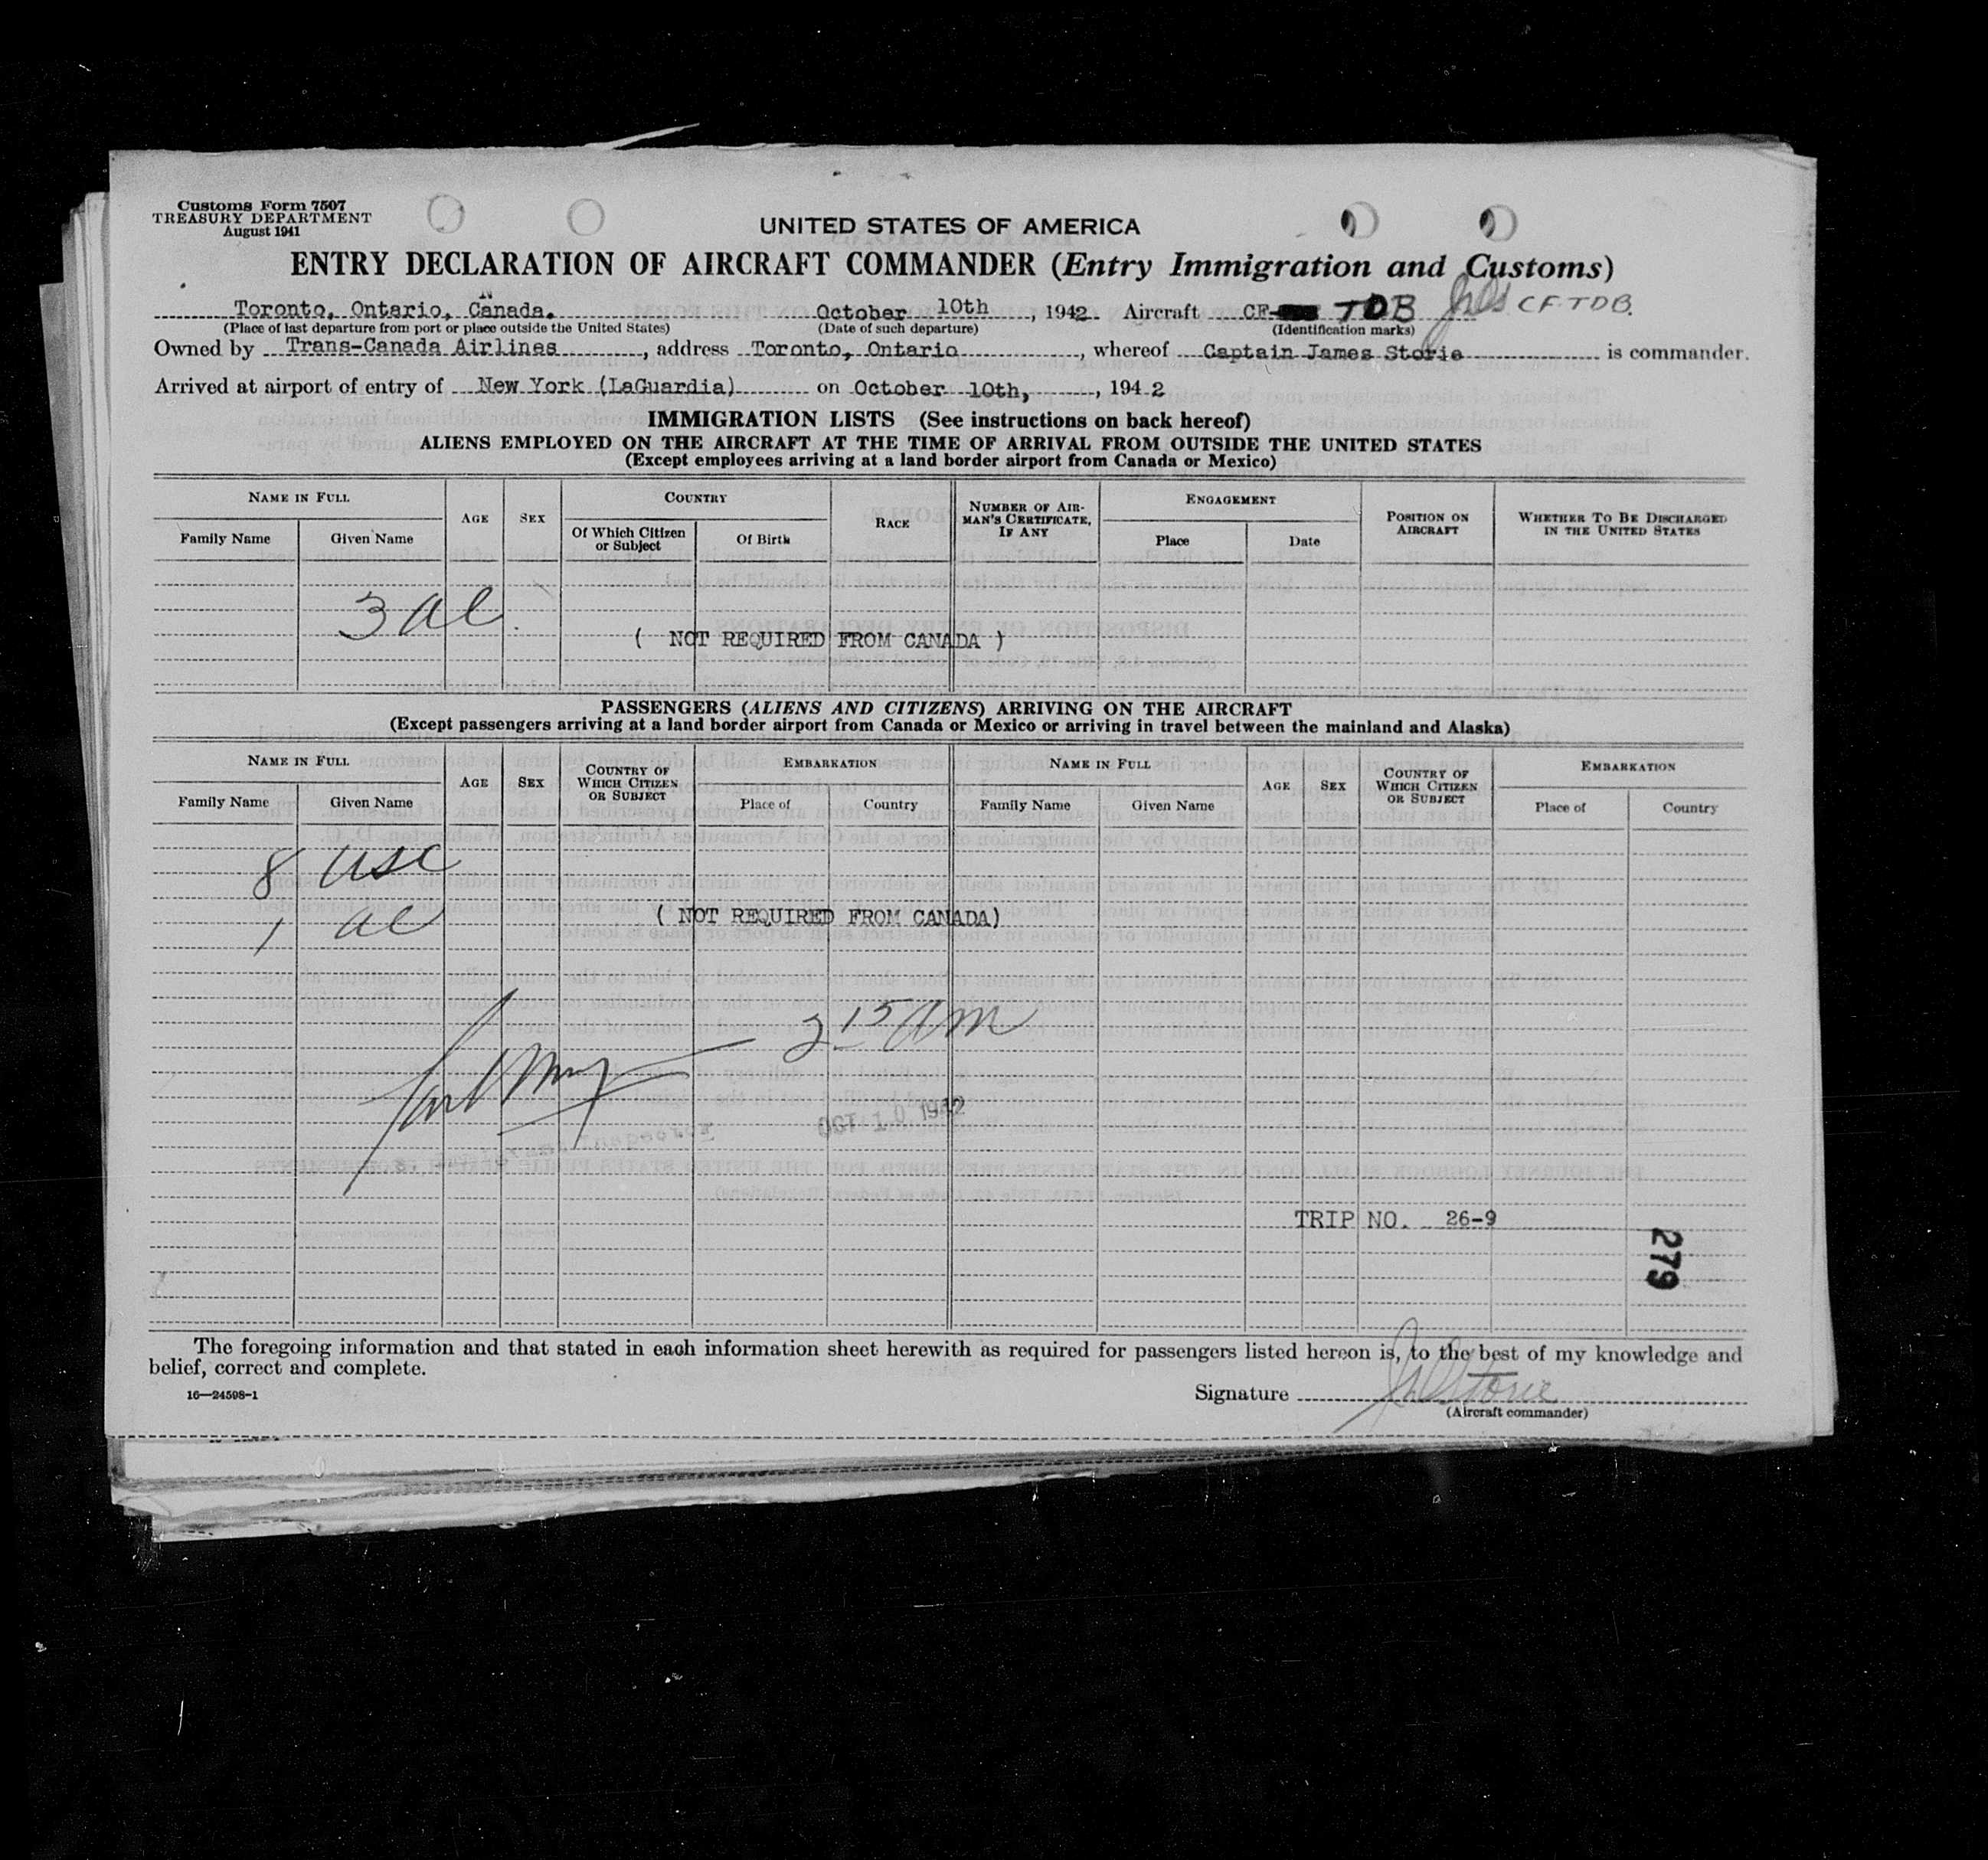 Customs Form 7507
TREASURY DEPARTMENT
August 1941
UNITED STATES OF AMERICA
ENTRY DECLARATION OF AIRCRAFT COMMANDER (Entry Immigration and Customs)
Toronto, Ontario, Canada. October 10th, 1942 Aircraft CF- TDB CF TDB.
(Place of last departure from port or place outside the United States) (Date of such departure) (Identification marks)
Owned by Trans-Canada Airlines, address Toronto, Ontario, whereof Captain James Storie is commander.
Arrived at airport of entry of New York (LaGuardia) on October 10th, , 1942
IMMIGRATION LISTS (See instructions on back hereof)
ALIENS EMPLOYED ON THE AIRCRAFT AT THE TIME OF ARRIVAL FROM OUTSIDE THE UNITED STATES
(Except employees arriving at a land border airport from Canada or Mexico)
NAME IN FULL AGE SEX COUNTRY RACE NUMBER OF AIRMAN'S CERTIFICATE, IF ANY ENGAGEMENT POSITION ON AIRCRAFT WHETHER TO BE DISCHARGED IN THE UNITED STATES
Family Name Given Name Of Which Citizen or Subject Of Birth Place Date
3 al.
( NOT REQUIRED FROM CANADA )
PASSENGERS (ALIENS AND CITIZENS) ARRIVING ON THE AIRCRAFT
(Except passengers arriving at a land border airport from Canada or Mexico or arriving in travel between the mainland and Alaska)
NAME IN FULL AGE SEX COUNTRY OF WHICH CITIZEN OR SUBJECT EMBARKATION NAME IN FULL AGE SEX COUNTRY OF WHICH CITIZEN OR SUBJECT EMBARKATION
Family Name Given Name Place of Country Family Name Given Name Place of Country
8 USC
1 al
( NOT REQUIRED FROM CANADA)
2 15 AM
OCT 10 1942
TRIP NO. 26-9
279
The foregoing information and that stated in each information sheet herewith as required for passengers listed hereon is, to the best of my knowledge and
belief, correct and complete.
16—24598-1
Signature Storie
(Aircraft commander)